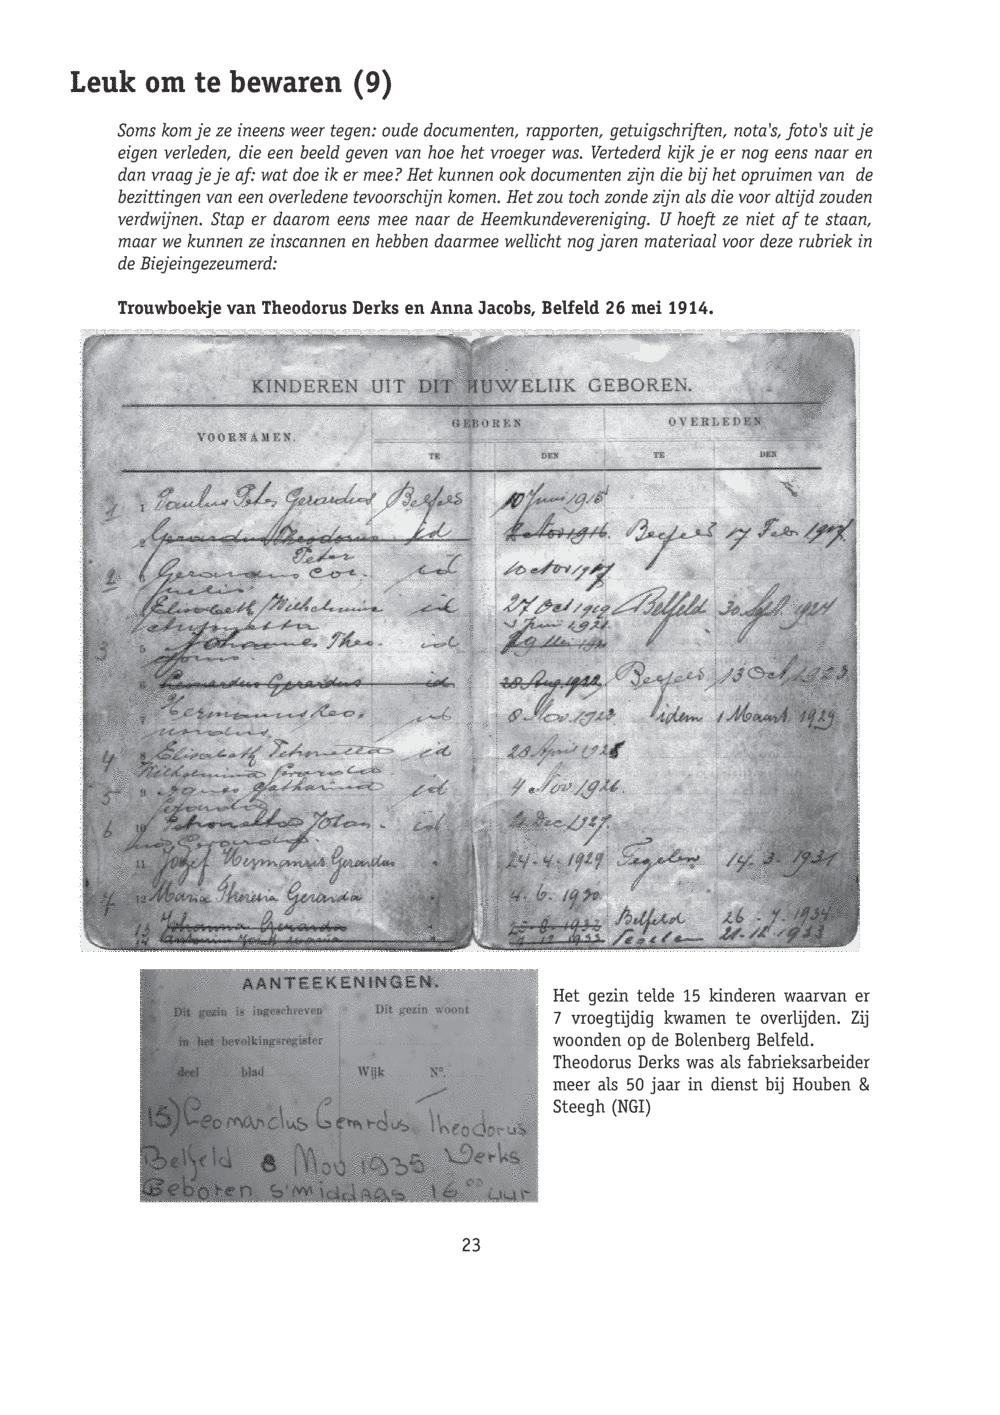 Leuk om te bewaren (9)
Soms kom je ze ineens weer tegen: oude documenten, rapporten, getuigschriften, nota's, foto's uit je
eigen verleden, die een beeld geven van hoe het vroeger was. Vertederd kijk je er nog eens naar en
dan vraag je je af: wat doe ik er mee? Het kunnen ook documenten zijn die bij het opruimen van de
bezittingen van een overledene tevoorschijn komen. Het zou toch zonde zijn als die voor altijd zouden
verdwijnen. Stap er daarom eens mee naar de Heemkundevereniging. U hoeft ze niet af te staan,
maar we kunnen ze inscannen en hebben daarmee wellicht nog jaren materiaal voor deze rubriek in
de Biejeingezeumerd:
Trouwboekje van Theodorus Derks en Anna Jacobs, Belfeld 26 mei 1914.
KINDEREN UIT DIT HUWELIJK GEBOREN.
VOORNAMEN. GEBOREN OVERLEDEN
TE DEN TE DEN
1 1 Paulus Peter Gerardus Belfeld 10 Juni 1915
2 Gerardus Theodorus id 2 Nov 1916. Belfeld 17 Febr 1917.
Peter
2 3 Gerardus Cor. id 10 Nov 1917
nelis
Elisabeth Wilhelmina id 27 Oct 1919 Belfeld 30 Sept. 1924
Petronella 3 Juni 1921
3 5 Johannes Theo. id
dorus.
6 Leonardus Gerardus id 28 Aug. 1922 Belfeld 13 Oct 1923
7 Hermanus Leo. id 8 Nov. 1923. idem 1 Maart 1929
nardus.
4 8 Elisabeth Petronella id 28 April 1925
Wilhelmina Gerarda.
5 9 Agnes Catharina id 4 Nov 1926.
Gerarda
6 10 Petronella Johan. id Dec 1927.
na Gerarda.
11 Jozef Hermanus Gerardus " 24-4. 1929 Tegelen 14. 3. 1931
7 12 Maria Theresia Gerarda " 4. 6. 1930
13 Johanna Gerarda " 8. 1932 Belfeld 26 - 7. 1934
14 Antonius Jozef Maria " 12 1933 Tegelen 21-12. 1933
AANTEEKENINGEN.
Dit gezin is ingeschreven Dit gezin woont
in het bevolkingsregister
deel blad Wijk N°.
15) Leonardus Gerardus Theodorus
Belfeld 8 Nov 1935 Derks
Geboren s'middags 16 00 uur
Het gezin telde 15 kinderen waarvan er
7 vroegtijdig kwamen te overlijden. Zij
woonden op de Bolenberg Belfeld.
Theodorus Derks was als fabrieksarbeider
meer als 50 jaar in dienst bij Houben &
Steegh (NGI)
23